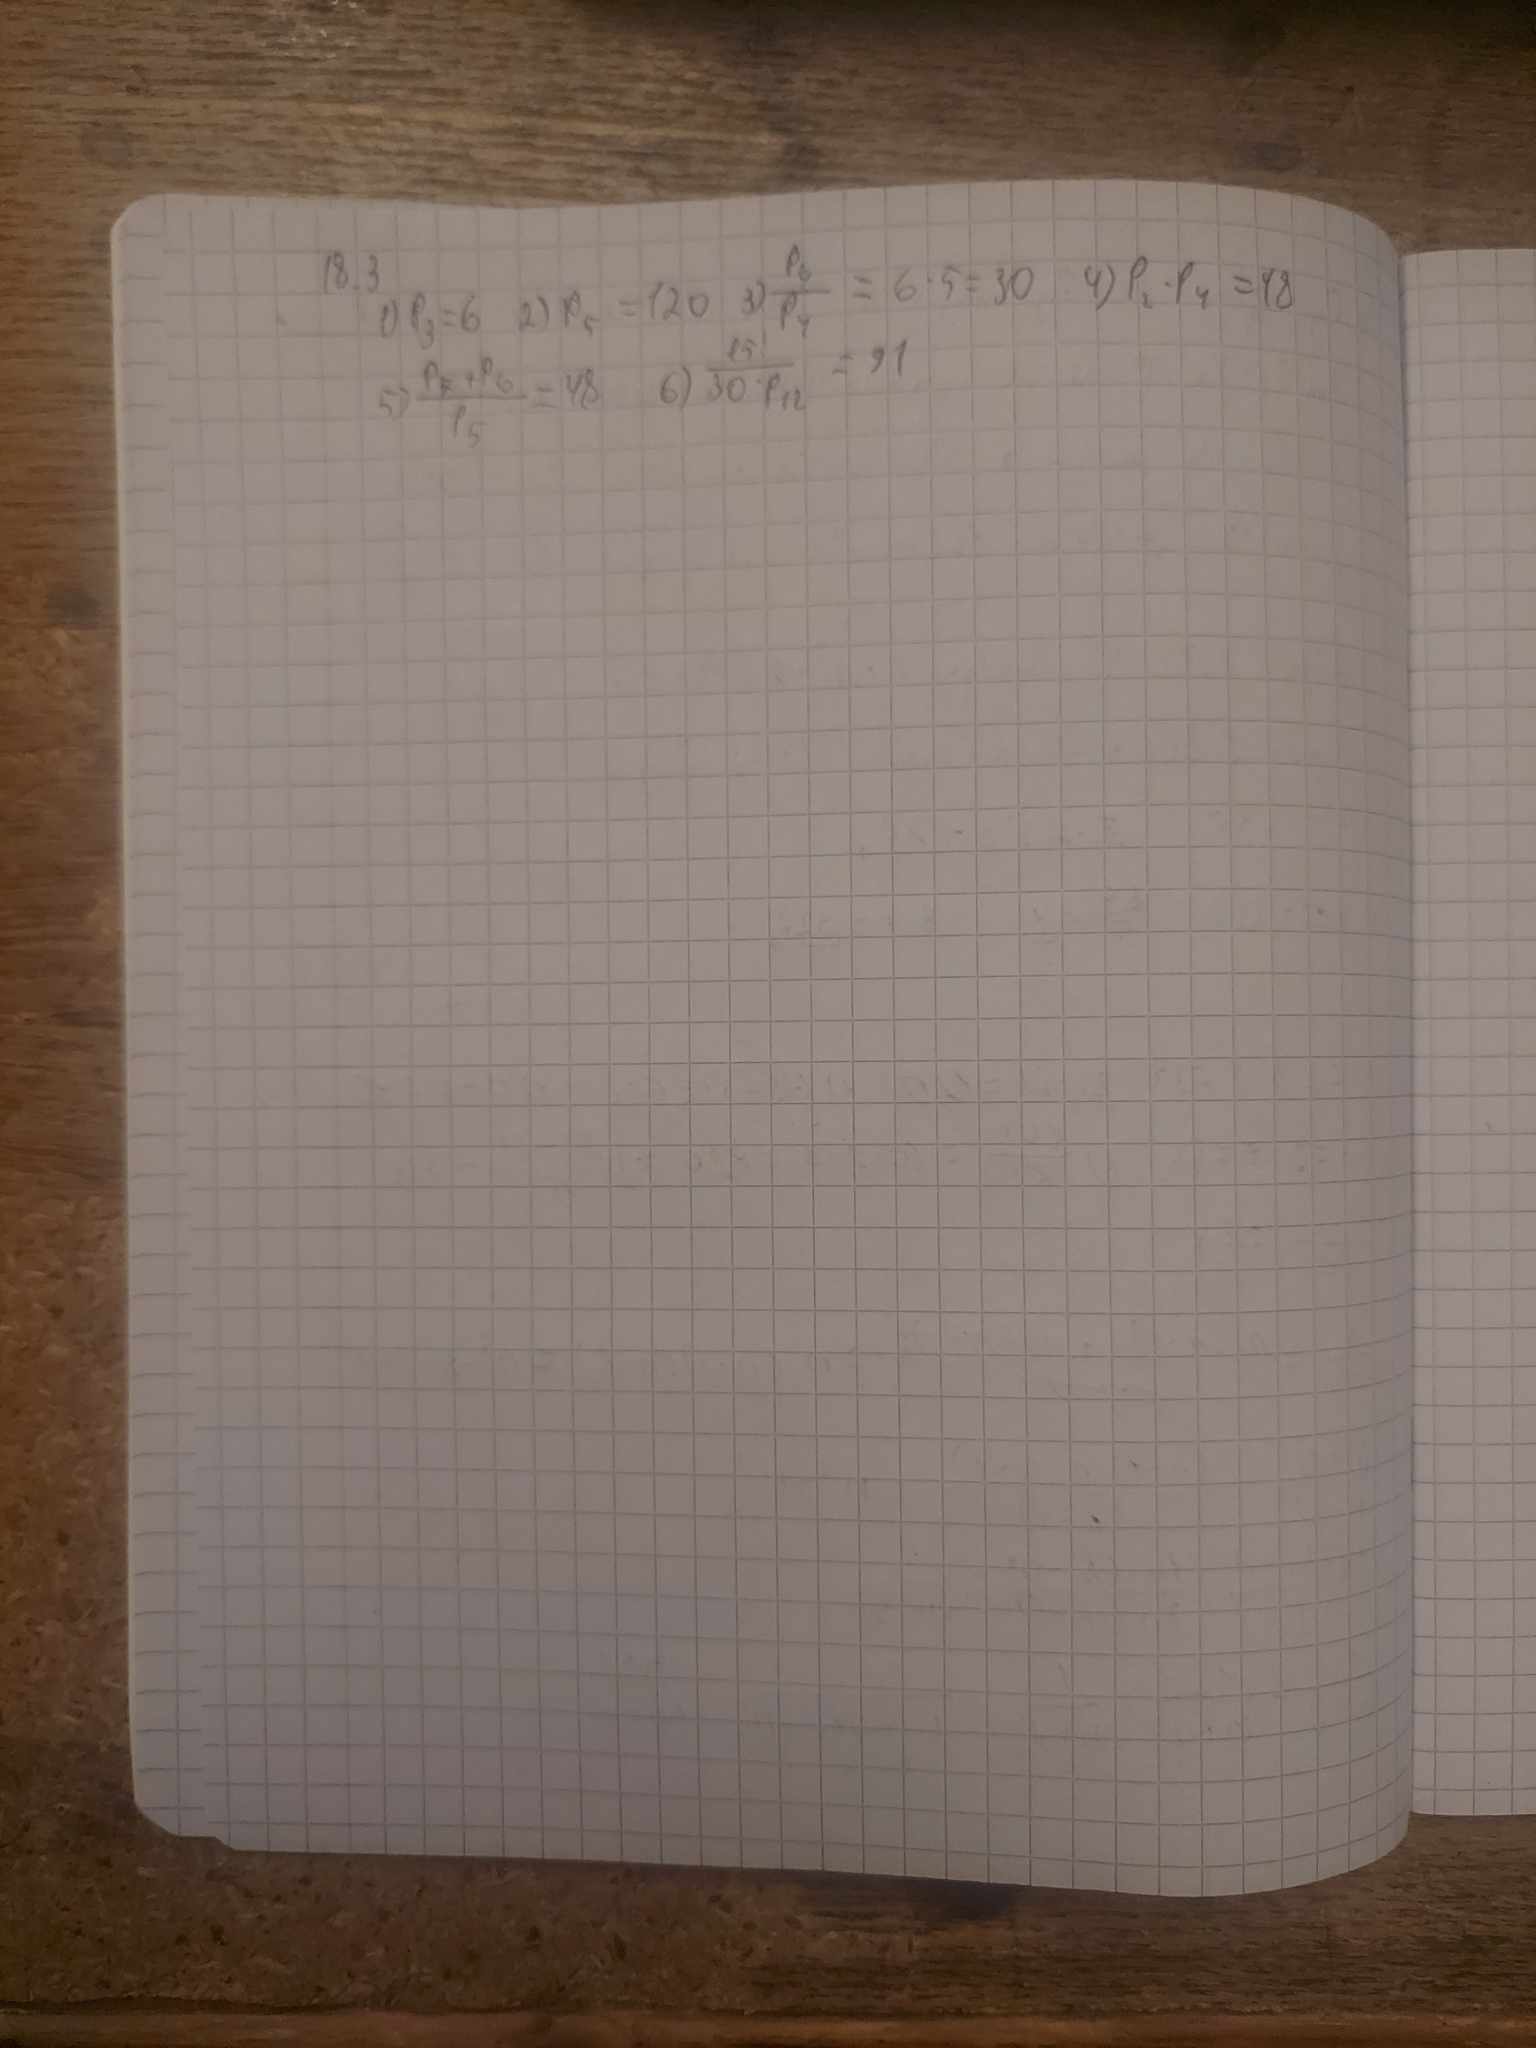 18.3
1) P₃=6 2) P₅ =120 3) P₆/P₄ = 6·5=30 4) P₂·P₄ =48
5) (P₇+P₆)/P₅ =48 6) 15!/(30·P₁₂) =91